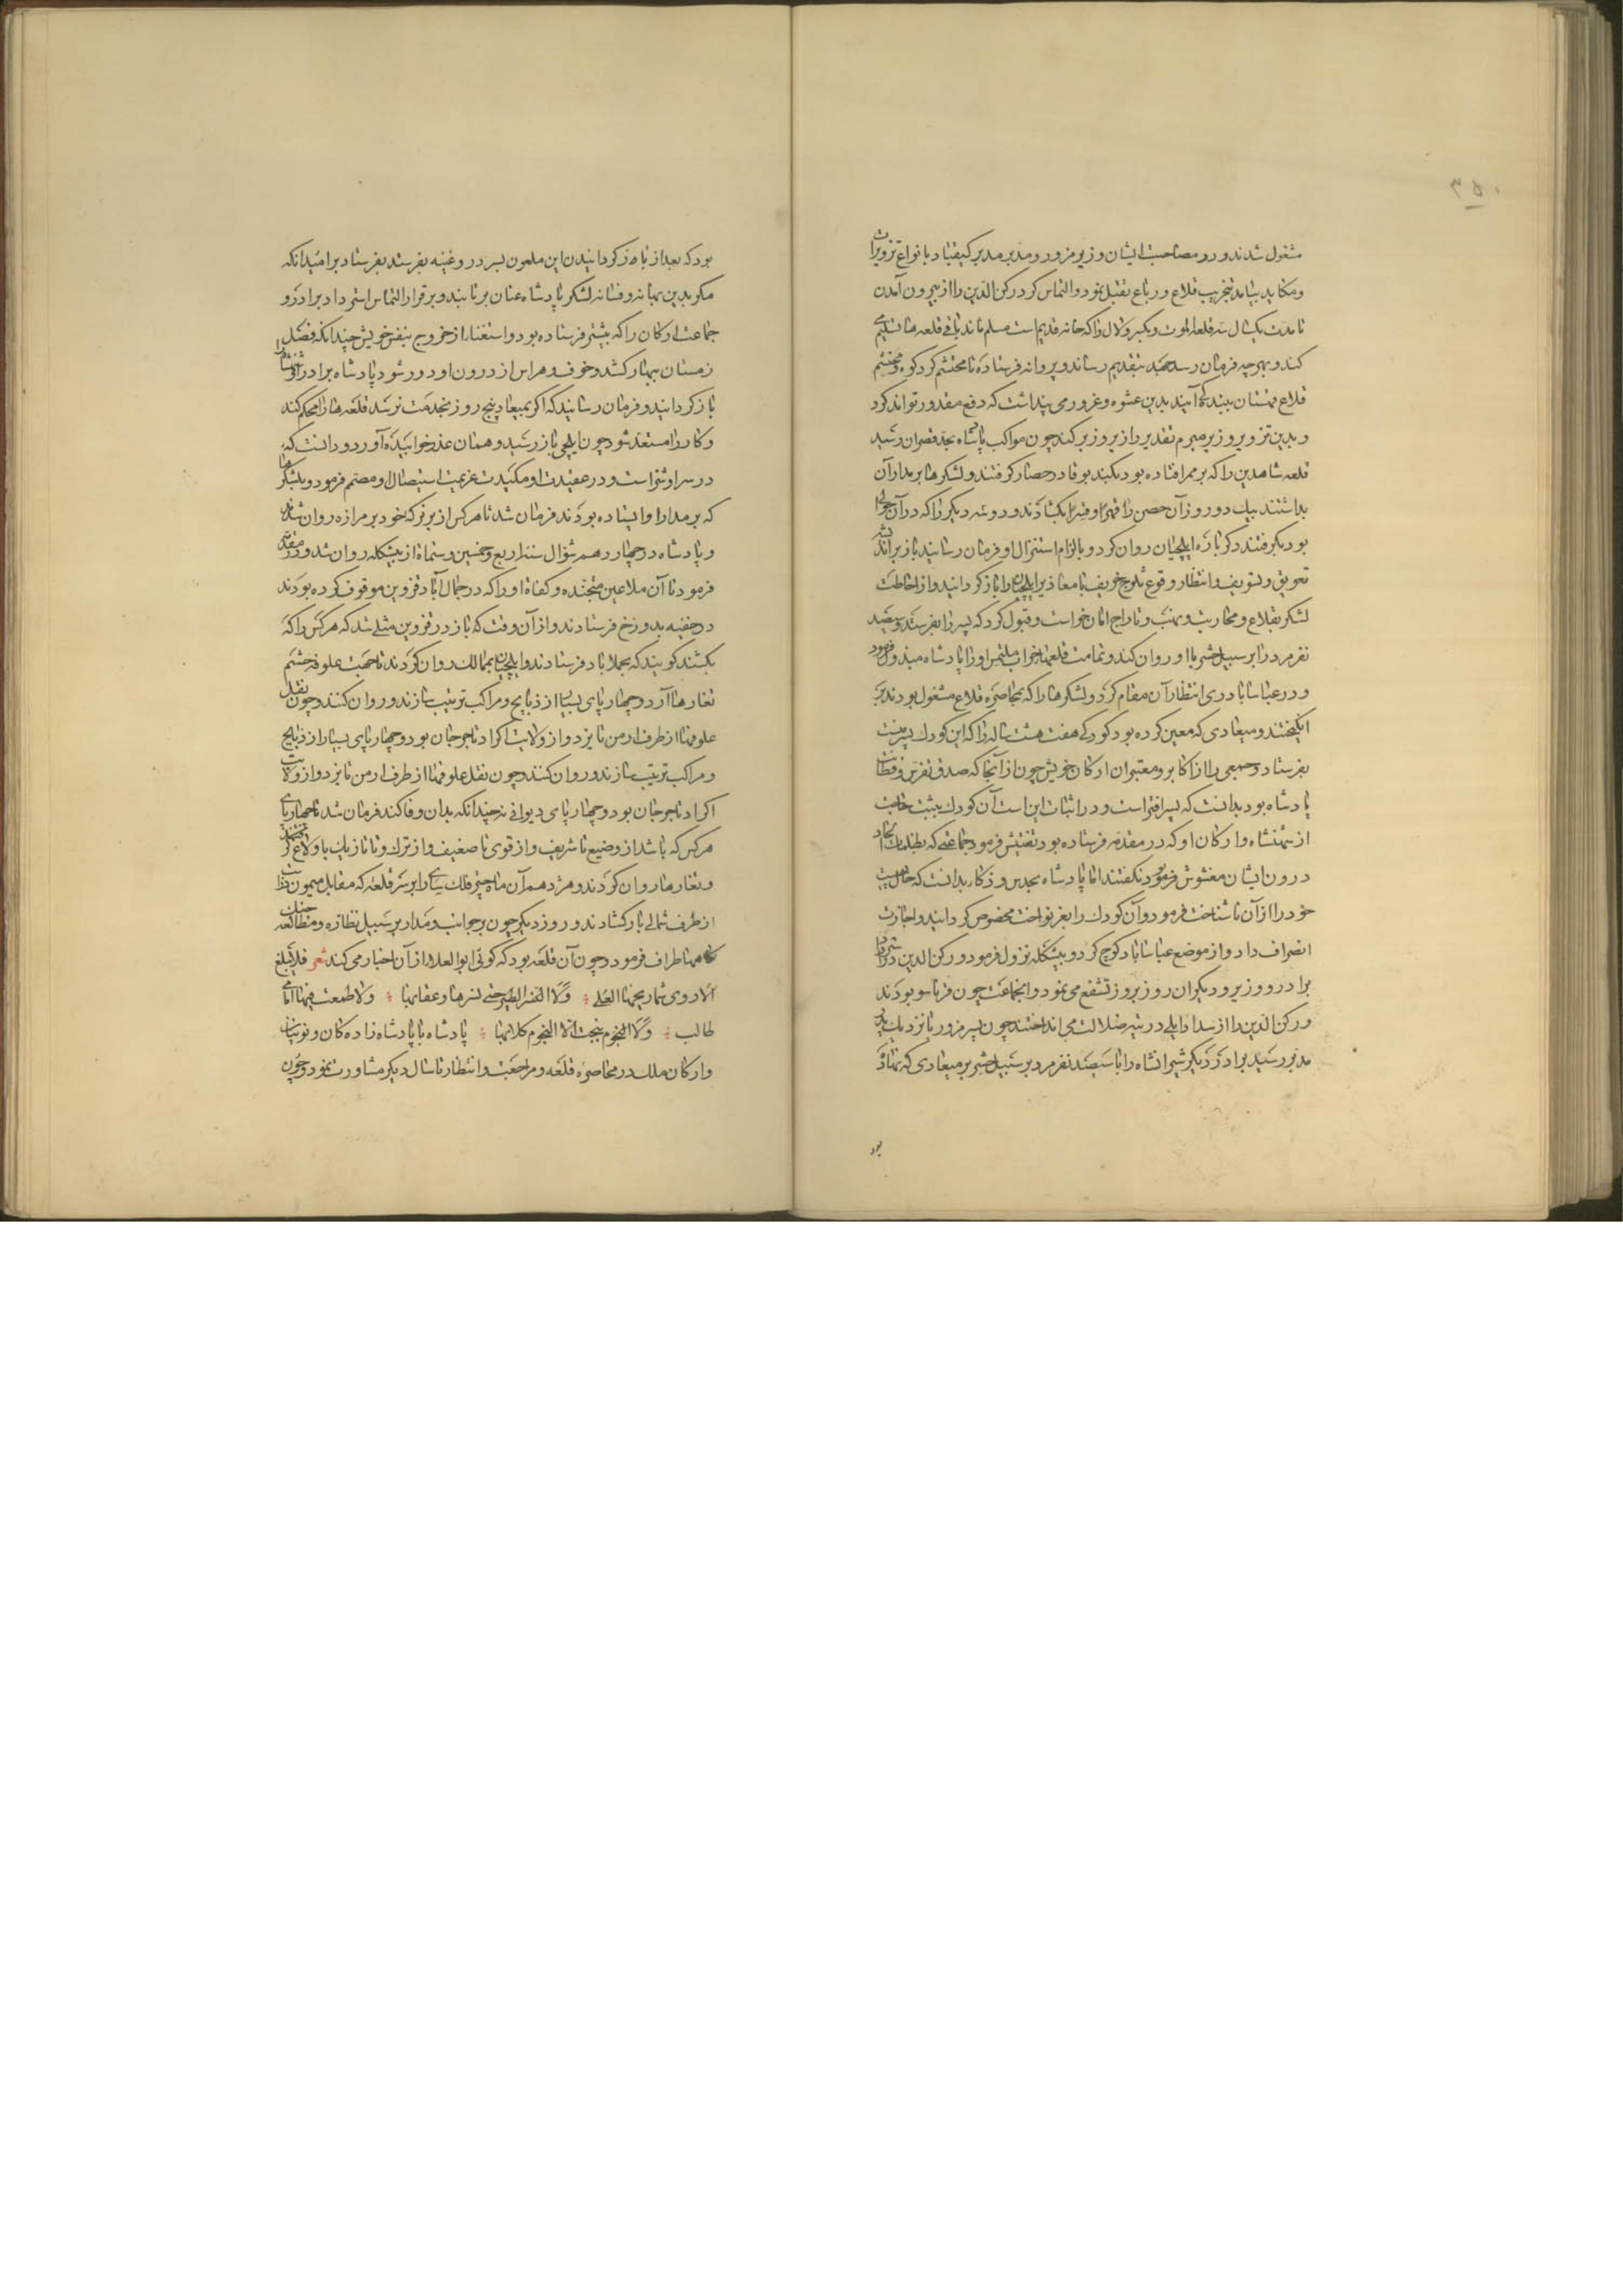 ۳۵۰
مشغول شدند و در مصاحبت ایشان وزیر مزور و مدبر مدبر کیقباد با نواع تزویرات
و مکاید بیامد بتخریب قلاع و رباع تقبل نمود و التماس کرد رکن الدین را از بیرون آمدن
تا مدت یکسال سه قلعه الموت و لمبسر و لال را که خانه قدیم است مسلم ماند باقی قلعه ها تسلیم
کند و بهرچه فرمان رسد بتقدیم رساند و پروانه فرستاده تا محتشم گردکوه و محتشم
قلاع قهستان ببندگی آیند بدین عشوه و غرور می پنداشت که دفع مقدور تواند کرد
و بدین تزویر وزیر مبرم تقدیر را زیر و زبر کند چون مواکب پادشاه بحد قصران رسید
قلعه شاهدیز را که بر ممر افتاده بود کیدبوقا در حصار گرفتند و لشکرها بر مدار آن
بداشتند بیک دو روز آن حصن را قهرا و قسرا بکشادند و دو سه دیگر را که در آن حوالی
بود بگرفتند دگر باره ایلچیان روان کرد و بالزام استنزال او فرمان رسانید باز بر اندیشه
تعویق و تسویف و انتظار وقوع ثلوج خریف با معاذیر ایلچیان را باز گردانید و از احاطت
لشکر بقلاع و محاربت و نهب و تاراج امان خواست و قبول کرد که پسر را بفرستد و سیصد
نفر مرد را بر سبیل حشر با او روان کند و تمامت قلعها خراب ملتمس او را پادشاه مبذول فرمود
و در عباساباد ری انتظار آن مقام کرد و لشکرها را که بمحاصره قلاع مشغول بودند بر
انگیختند و میعادی که معین کرده بود کودکی هفت هشت ساله را که این کودک پسر منست
بفرستاد و جمعی را از اکابر و معتبران ارکان خویش چون از آنجا که صدق تفرس و فطانت
پادشاه بود بدانست که پسر افتراست و در اثبات این است آن کودک بیثبت
از شهنشاه و ارکان او که در مقدمه فرستاده بود تفتیش فرمود جماعتی که
درون ایشان مغشوش فرمود نگفتند اما پادشاه بحدس و ذکا بدانست که
خود را از آن ناشناخت فرمود و آن کودک را بعز نواخت مخصوص گردانید و اجازت
انصراف داد و از موضع عباساباد کوچ کرد و بپیشکله نزول فرمود و رکن الدین
برادر و وزیر و دیگران روز بروز تشفع می نمود و آنجماعت چون قرناء سو بودند
و رکن الدین را از سداد رای در تیه ضلالت می انداختند چون پسر مزور با نزدیک پدر
مدبر رسید برادر دیگر شیرانشاه را با سیصد نفر مرد بر سبیل حشر بر میعادی که نهاده
بود
بود که بعد از باز گردانیدن این ملعون پسر دروغینه بفرستد بفرستاد بر امید آنکه
مگر بدین بهانه و فسانه لشکر پادشاه عنان برتابند و بر قرار التماس استرداد برادر و
جماعت ارکان را که پیشتر فرستاده بود و استغنا از خروج بنفس خویش چندانکه فصل
زمستان بهمار کشد و خوف و هراس از درون او دور شود پادشاه برادر او شهنشاه را
باز گردانید و فرمان رسانید که اگر بمیعاد پنج روز بخدمت نرسد قلعه ها را محکم کند
و کار را مستعد شود چون ایلچی باز رسید و همتان عذر خوابیده آورد و دانست که
در سر او شر است و در عقیدت او مکیدت عزیمت استیصال او مصمم فرمود و بلشکرها
که بر مدار او ایستاده بودند فرمان شد تا هر کس از برنرکه خود بر مرازه روان شدند
و پادشاه در چهاردهم شوال سنه اربع و خمسین و ستماة از بیشکله روان شد و در مقدمه
فرمود تا آن ملاعین متجنده و کفاة او را که در جمال آباد قزوین موقوف کرده بودند
در خفیه بدوزخ فرستادند و از آن وقت که باز در قزوین مثلی شد که هر کس را که
بکشند گویند که بجملاباد فرستادند و ایلچیان بممالک روان کردند تا جهت علوفه حشم
تغارها آرد و چهارپای بسیا از ذبایح و مراکب ترتیب سازند و روان کنند و چون نقل
علوفها از طرف ارمن تا یزد و از ولایت اکراد تا جرجان بود و چهارپای بسیار از ذبایح
و مراکب ترتیب سازند و روان کنند و چون نقل علوفها از طرف ارمن تا یزد و از ولایت
اکراد تا جرجان بود و چهارپای دیوانی نه چندانکه بدان وفا کند فرمان شد تا چهارپای
هر کس که باشد از وضیع تا شریف و از قوی تا ضعیف و از ترک و تا تازیک باولاغ گرفتند
و تغارها روان کردند و هژدهم آن ماه چتر فلک سای را بر سر قلعه که مقابل میمون دز است
از طرف شمالی باز کشادند و روز دیگر چون بر جوانب و مدار بر سبیل نظاره و مطالعه جنگ
گاهها طراف فرمود و چون آن قلعه بود که گوئی ابو العلا از آن اخبار می کند شعر فلا تبلغ
الاروی شماریخها العلی ؛ و لا الطیر حتی نسرها و عقابها ؛ و لا طمعت فیها امانی
طالب ؛ و لا النجوم کلابها ؛ پادشاه با پادشاه زادگان و نویینان
و ارکان ملک در محاصره قلعه و مراجعت و انتظار تا سال دیگر مشاورت نمود و چون